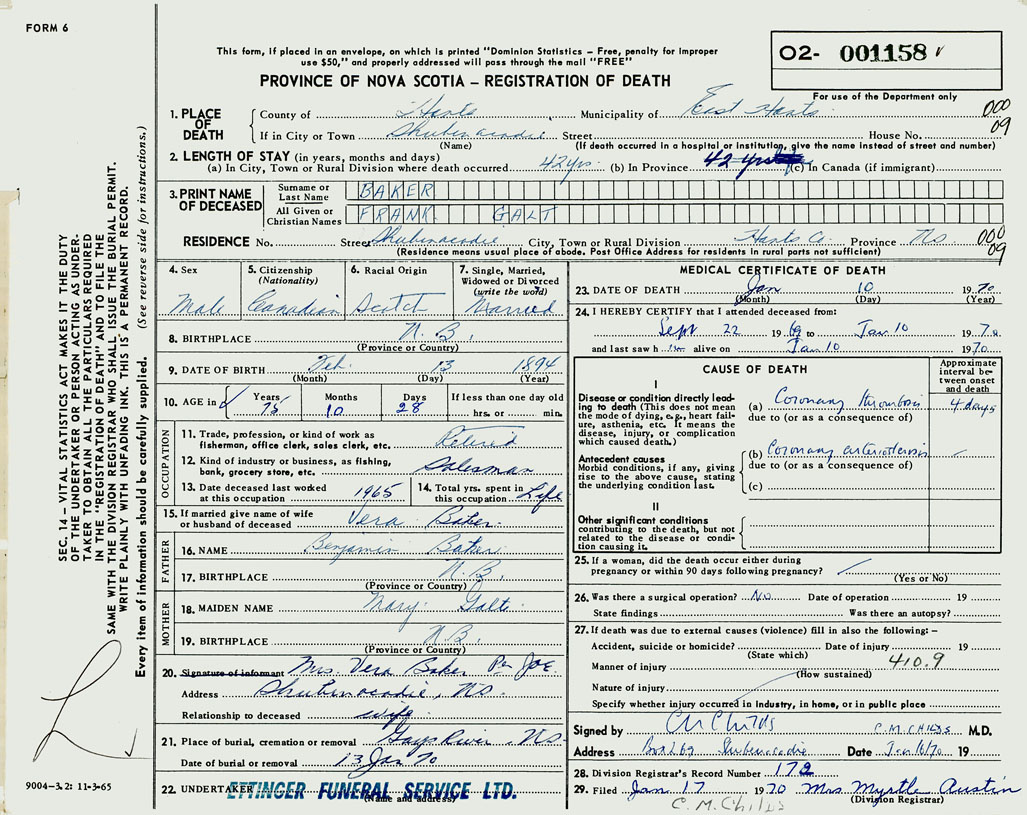 FORM 6
This form, if placed in an envelope, on which is printed "Dominion Statistics – Free, penalty for improper
use $50," and properly addressed will pass through the mail "FREE"
PROVINCE OF NOVA SCOTIA – REGISTRATION OF DEATH
O2- 001158
For use of the Department only
000
09
1. PLACE OF DEATH
County of Hants Municipality of East Hants
If in City or Town Shubenacadie Street House No.
(Name) (If death occurred in a hospital or institution, give the name instead of street and number)
2. LENGTH OF STAY (in years, months and days)
(a) In City, Town or Rural Division where death occurred 42 yrs. (b) In Province 42 yrs (c) In Canada (if immigrant)
3. PRINT NAME OF DECEASED
Surname or Last Name BAKER
All Given or Christian Names FRANK GALT
RESIDENCE No. Street Shubenacadie City, Town or Rural Division Hants Co. Province NS
000
09
(Residence means usual place of abode. Post Office Address for residents in rural parts not sufficient)
4. Sex
Male
5. Citizenship
(Nationality)
Canadian
6. Racial Origin
Scotch
7. Single, Married,
Widowed or Divorced
(write the word)
Married
8. BIRTHPLACE N.B.
(Province or Country)
9. DATE OF BIRTH Feb. 13 1894
(Month) (Day) (Year)
10. AGE in
Years Months Days If less than one day old
75 10 28 hrs. or min.
OCCUPATION
11. Trade, profession, or kind of work as
fisherman, office clerk, sales clerk, etc. Retired
12. Kind of industry or business, as fishing,
bank, grocery store, etc. Salesman
13. Date deceased last worked
at this occupation 1965
14. Total yrs. spent in
this occupation Life
15. If married give name of wife
or husband of deceased Vera Baker
FATHER
16. NAME Benjamin Baker
17. BIRTHPLACE N.B.
(Province or Country)
MOTHER
18. MAIDEN NAME Mary Galt
19. BIRTHPLACE N.B.
(Province or Country)
20. Signature of informant Mrs. Vera Baker Per JOE
Address Shubenacadie, NS.
Relationship to deceased wife
21. Place of burial, cremation or removal Gays River, NS.
Date of burial or removal 13 Jan 70
22. UNDERTAKER ETTINGER FUNERAL SERVICE LTD.
(Name and address)
MEDICAL CERTIFICATE OF DEATH
23. DATE OF DEATH Jan 10 1970
(Month) (Day) (Year)
24. I HEREBY CERTIFY that I attended deceased from:
Sept 22 1969 to Jan. 10 1970
and last saw h im alive on Jan 10 1970
CAUSE OF DEATH
Approximate
interval be-
tween onset
and death
I
Disease or condition directly lead-
ing to death (This does not mean
the mode of dying, e.g., heart fail-
ure, asthenia, etc. It means the
disease, injury, or complication
which caused death.)
(a) Coronary thrombosis 4 days
due to (or as a consequence of)
Antecedent causes
Morbid conditions, if any, giving
rise to the above cause, stating
the underlying condition last.
(b) Coronary
due to (or as a consequence of)
(c)
II
Other significant conditions
contributing to the death, but not
related to the disease or condi-
tion causing it.
25. If a woman, did the death occur either during
pregnancy or within 90 days following pregnancy?
(Yes or No)
26. Was there a surgical operation? No Date of operation 19
State findings Was there an autopsy?
27. If death was due to external causes (violence) fill in also the following: –
Accident, suicide or homicide? Date of injury 19
(State which)
410.9
Manner of injury
(How sustained)
Nature of injury
Specify whether injury occurred in industry, in home, or in public place
Signed by CM Childs C.M. CHILDS M.D.
Address Box 169 Shubenacadie Date Jan 16/70 19
28. Division Registrar's Record Number 172
29. Filed Jan 17 1970 Mrs Myrtle Austin
(Division Registrar)
C. M. Childs
SEC. 14 – VITAL STATISTICS ACT MAKES IT THE DUTY
OF THE UNDERTAKER OR PERSON ACTING AS UNDER-
TAKER TO OBTAIN ALL THE PARTICULARS REQUIRED
IN THE "REGISTRATION OF DEATH" AND TO FILE THE
SAME WITH THE DIVISION REGISTRAR WHO SHALL ISSUE THE BURIAL PERMIT.
WRITE PLAINLY WITH UNFADING INK. THIS IS A PERMANENT RECORD.
Every item of information should be carefully supplied. (See reverse side for instructions.)
9004–3.2: 11-3-65